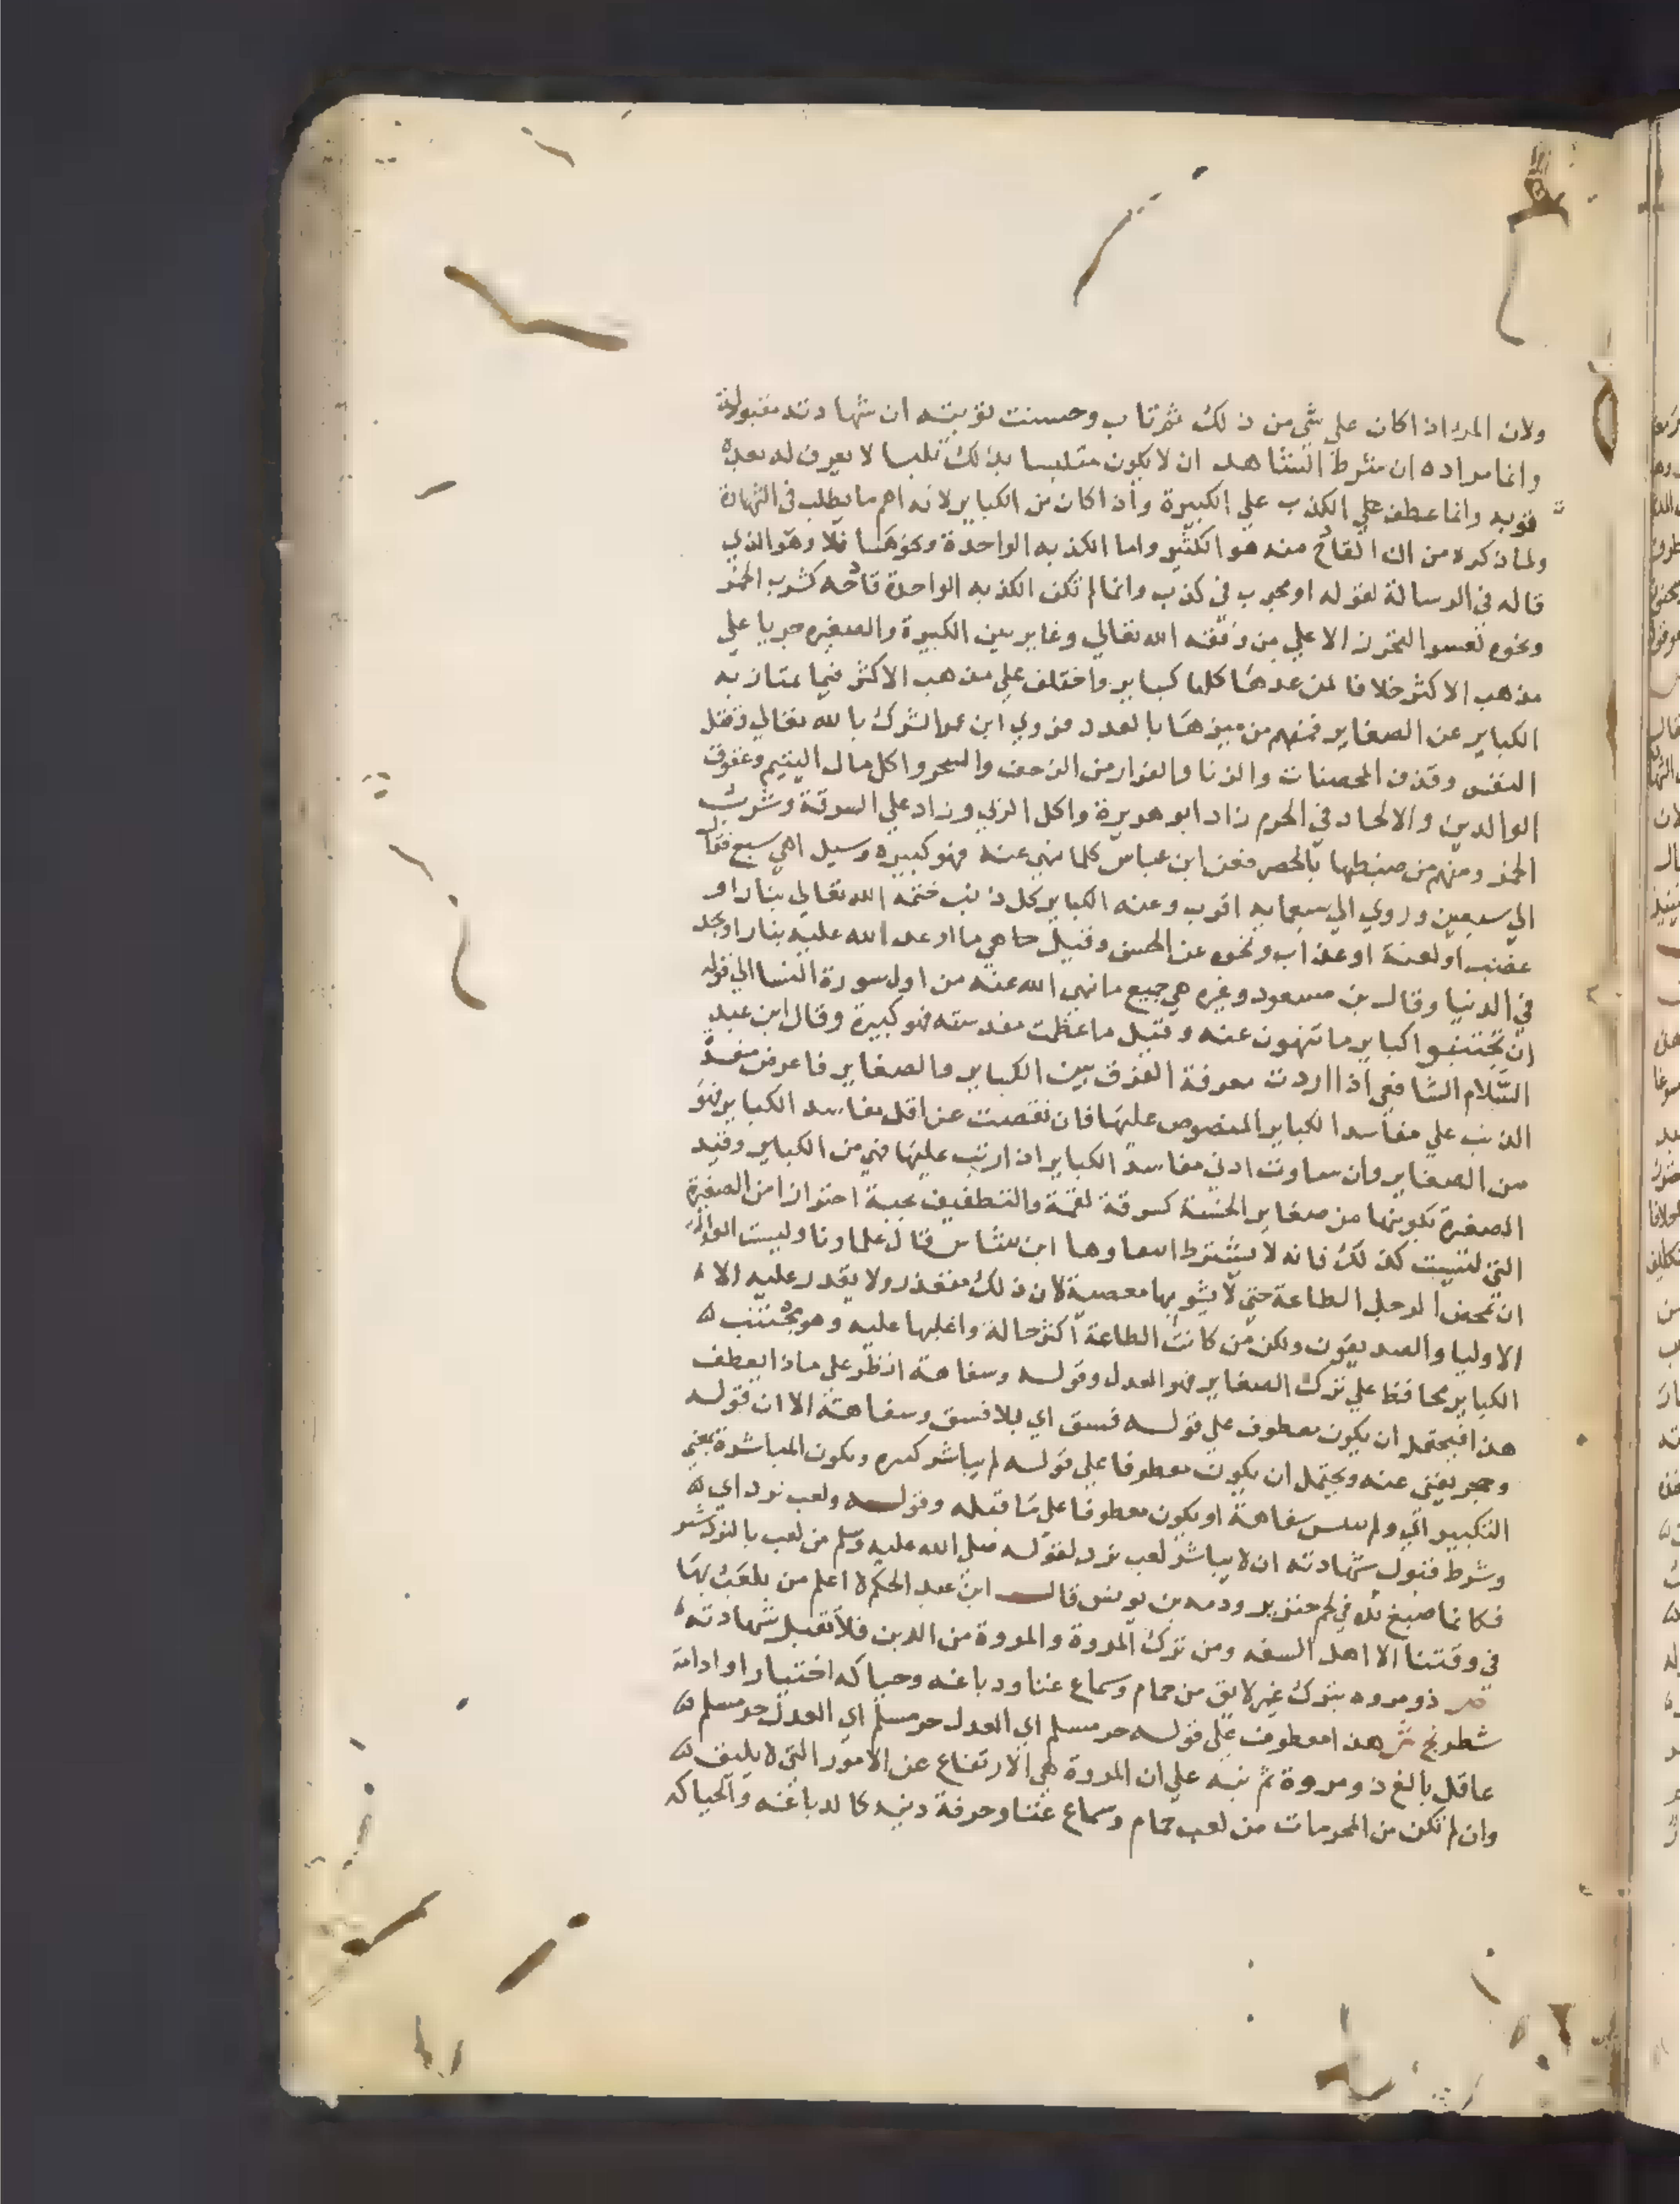 ولان المرء اذا كان علي شي من ذلك ثم تاب وحسنت توبته ان شهادته مقبولة
وانما مراده ان شرط الشاهد ان لا يكون متلبسا بذلك تلبسا لا يعرف له بعده
توبه وانما عطف علي الكذب علي الكبيرة وان كان من الكباير لانه اهم ما يطلب في الشهادة
ولما ذكره من ان القادح منه هو الكثير واما الكذبه الواحدة ونحوها فلا وهو الذي
قاله في الرسالة لقوله او مجرب في كذب وانما لم تكن الكذبه الواحدة قادحه كشرب الخمر
ونحوه لعسر التحرز الا علي من وفقه الله تعالي وغاير بين الكبيرة والصغيره جريا علي
مذهب الاكثر خلافا لمن عدها كلها كباير واختلف علي مذهب الاكثر فيما تمتاز به
الكباير عن الصغاير فمنهم من ميزها بالعدد فروي ابن عمر الشرك بالله تعالي وقتل
النفس وقذف المحصنات والزنا والفرار من الزحف والسحر واكل مال اليتيم وعقوق
الوالدين والالحاد في الحرم زاد ابو هريرة واكل الربي وزاد علي السرقة وشرب
الخمر ومنهم من ضبطها بالحصر فعن ابن عباس كلما نهي عنه فهو كبيره وسيل اهي سبع فقال
الي سبعين وروي الي سبعمايه اقرب وعنه الكباير كل ذنب ختمه الله تعالي بنار او
غضب او لعنة او عذاب ونحوه عن الحسن وقيل ما هي ما اوعد الله عليه بنار او بحد
في الدنيا وقال بن مسعود وغيره هي جميع ما نهي الله عنه من اول سورة النسا الي قوله
ان تجتنبوا كباير ما تنهون عنه وقيل ما عظمت مفسدته فهو كبيرة وقال ابن عبد
السّلام الشافعي اذا اردت معرفة الفرق بين الكباير والصغاير فاعرض مفسدة
الذنب علي مفاسد الكباير المنصوص عليها فان نقصت عن اقل مفاسد الكباير فهو
من الصغاير وان ساوت ادني مفاسد الكباير او اربت عليها فهي من الكباير وقيد
الصغيرة بكونها من صغاير الخسة كسرقة لقمة والتطفيف بحبة احترازا من الصغيرة
التي ليست كذلك فانه لا يشترط انتفاوها ابن شاس قال علماونا وليست العدالة
ان تمحض الرجل الطاعة حتي لا يشوبها معصية لان ذلك متعذر ولا يقدر عليه الا
الاوليا والصديقون ولكن من كانت الطاعة اكثر حاله واغلبها عليه وهو مجتنب
الكباير محافظ علي ترك الصغاير فهو العدل وقوله وسفاهة انظر علي ماذا يعطف
هذا فيحتمل ان يكون معطوف علي قوله فسق اي بلا فسق وسفاهة الا ان قوله
وحجر يغني عنه ويحتمل ان يكون معطوفا علي قوله لم يباشر كبيره ويكون المباشرة بمعني
التكبير اي ولم يباشر سفاهة او يكون معطوفا علي ما قبله وقوله ولعب نرد اي
وشرط قبول شهادته ان لا يباشر لعب نرد لقوله صلي الله عليه وسلم من لعب بالنردشير
فكانما صبغ يده في لحم خنزير ودمه بن يونس قال ابن عبد الحكم لا اعلم من يلعب بها
في وقتنا الا اهل السفه ومن ترك المروة والمروة من الدين فلا تقبل شهادته
ص ذو مروه بترك غير لايق من حمام وسماع غنا ودباغه وحياكه اختيارا وادامة
شطرنج ش هذا معطوف علي قوله حر مسلم اي العدل حر مسلم اي العدل حر مسلم
عاقل بالغ ذو مروة ثم نبه علي ان المروة هي الارتفاع عن الامور التي لا يليق
وان لم تكن من المحرمات من لعب حمام وسماع غنا وحرفة دنيه كالدباغه والحياكه